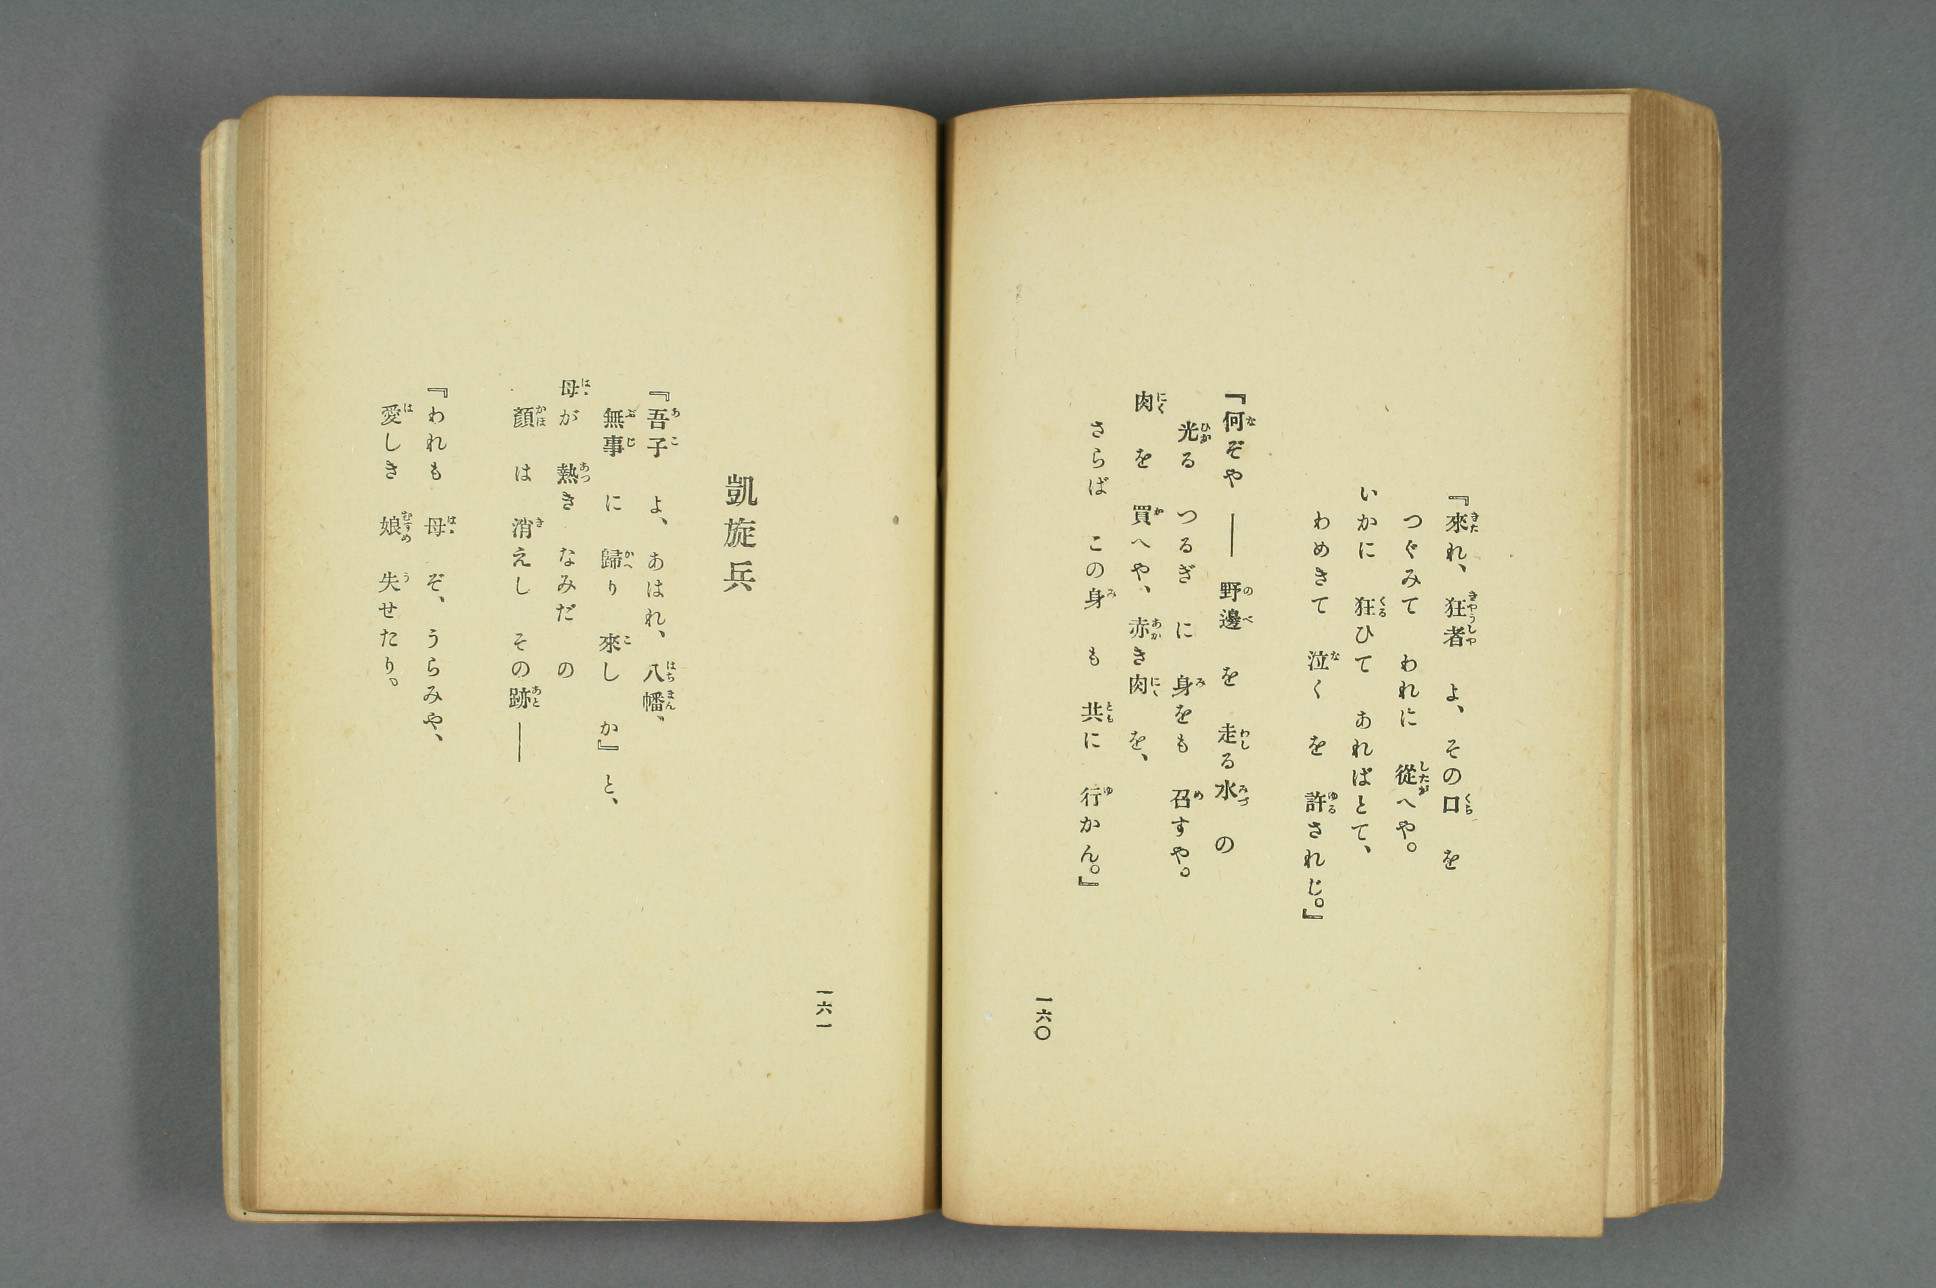 『來れ、狂者 よ、その口 を
つぐみて われに 從へや。
いかに 狂ひて あればとて、
わめきて 泣く を 許されじ。』
『何ぞや ── 野邊 を 走る水 の
光る つるぎ に 身をも 召すや。
肉 を 買へや、赤き肉 を、
さらば この身 も 共に 行かん。』
一六〇
凱旋兵
『吾子 よ、あはれ、八幡、
無事 に 歸り 來し か』と、
母が 熱き なみだ の
顏 は 消えし その跡──
『われも 母 ぞ、うらみや、
愛しき 娘 失せたり。
一六一